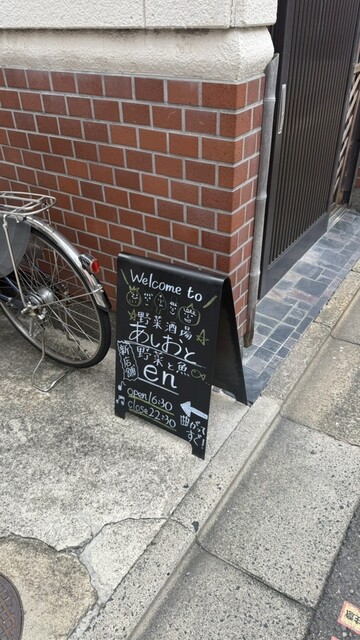 Welcome to
野菜酒場
あしおと
新店舗
野菜と魚
en
open 16:30
close 22:30
曲がって
すぐ!